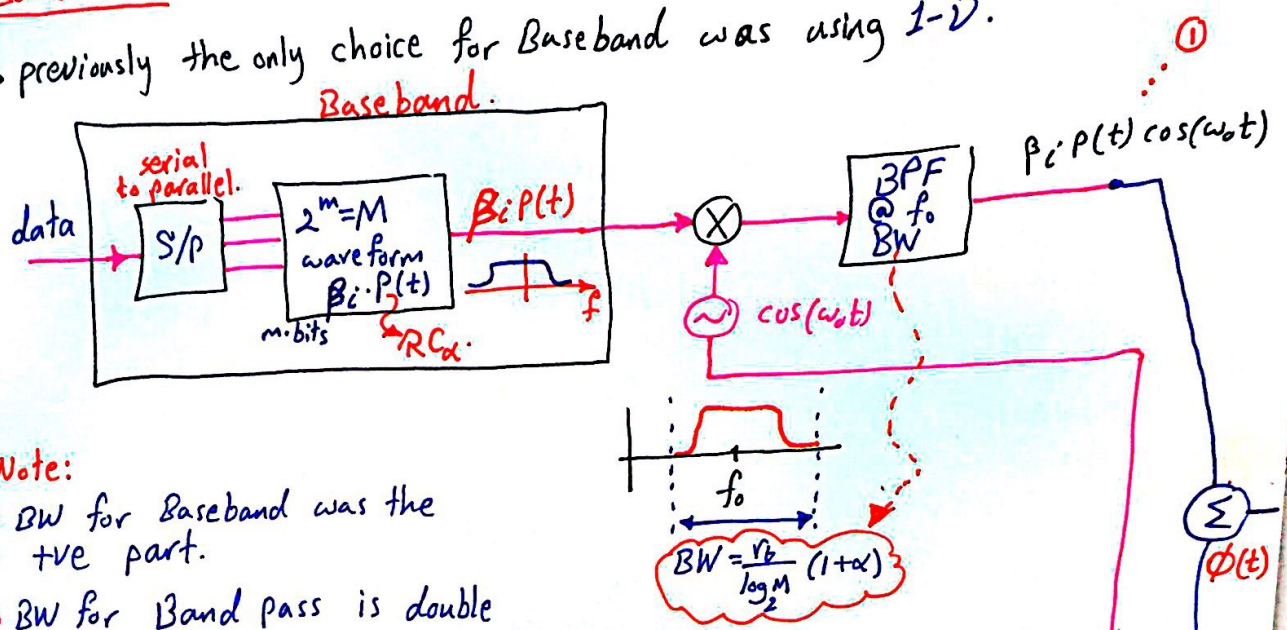 previously the only choice for Baseband was using 1-D.
①
Baseband.
serial
to parallel.
data
S/P
2^m=M
waveform
βi·P(t)
m·bits
RCα.
βi P(t)
f
X
cos(ω₀t)
BPF
@ f₀
BW
βi·P(t) cos(ω₀t)
f₀
BW = rb/log₂M (1+α)
Σ
φ(t)
Note:
BW for Baseband was the
+ve part.
BW for Band pass is double